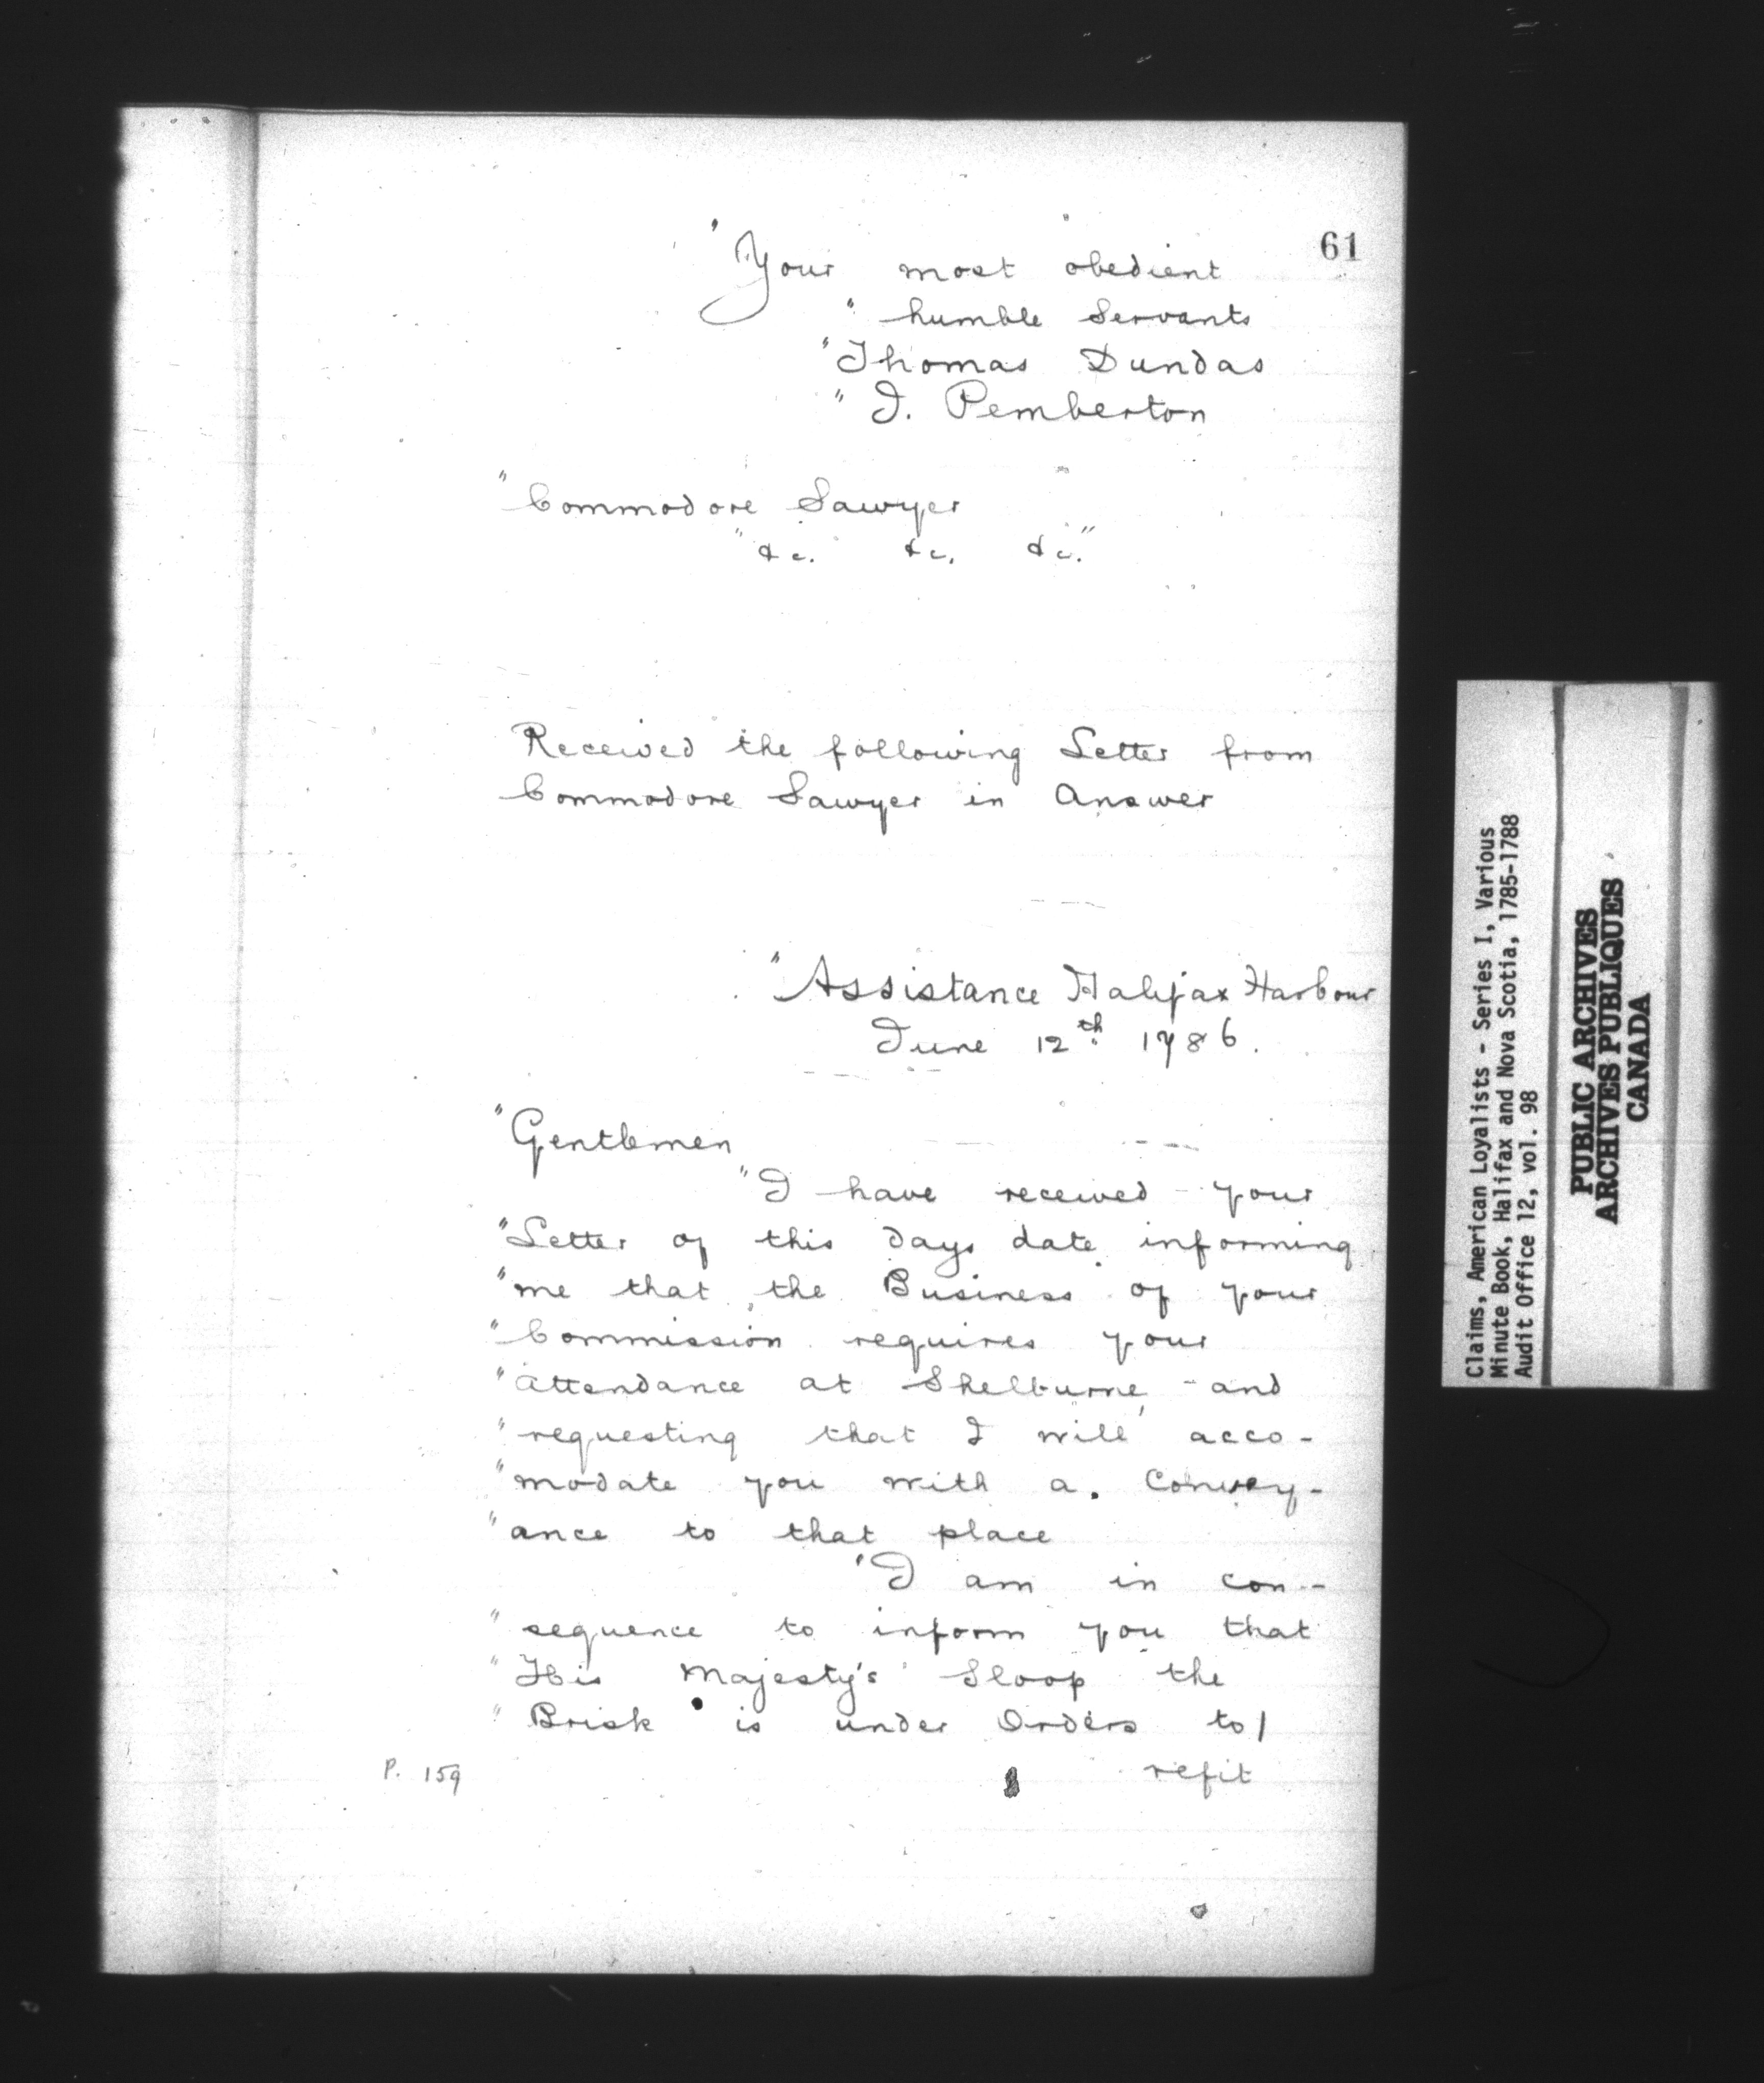 61
"Your most obedient
" humble Servants
"Thomas Dundas
" J. Pemberton
"Commodore Sawyer
"&c. &c. &c."
Received the following Letter from
Commodore Sawyer in Answer
"Assistance Halifax Harbour
June 12th 1786.
"Gentlemen
"I have received your
"Letter of this days date informing
"me that the Business of your
"Commission requires your
"attendance at Shelburne, and
"requesting that I will acco-
"modate you with a Convey-
"ance to that place
"I am in con-
"sequence to inform you that
"His Majesty's Sloop the
"Brisk is under Orders to/
refit
P. 159
Claims, American Loyalists - Series I, Various
Minute Book, Halifax and Nova Scotia, 1785-1788
Audit Office 12, vol. 98
PUBLIC ARCHIVES
ARCHIVES PUBLIQUES
CANADA